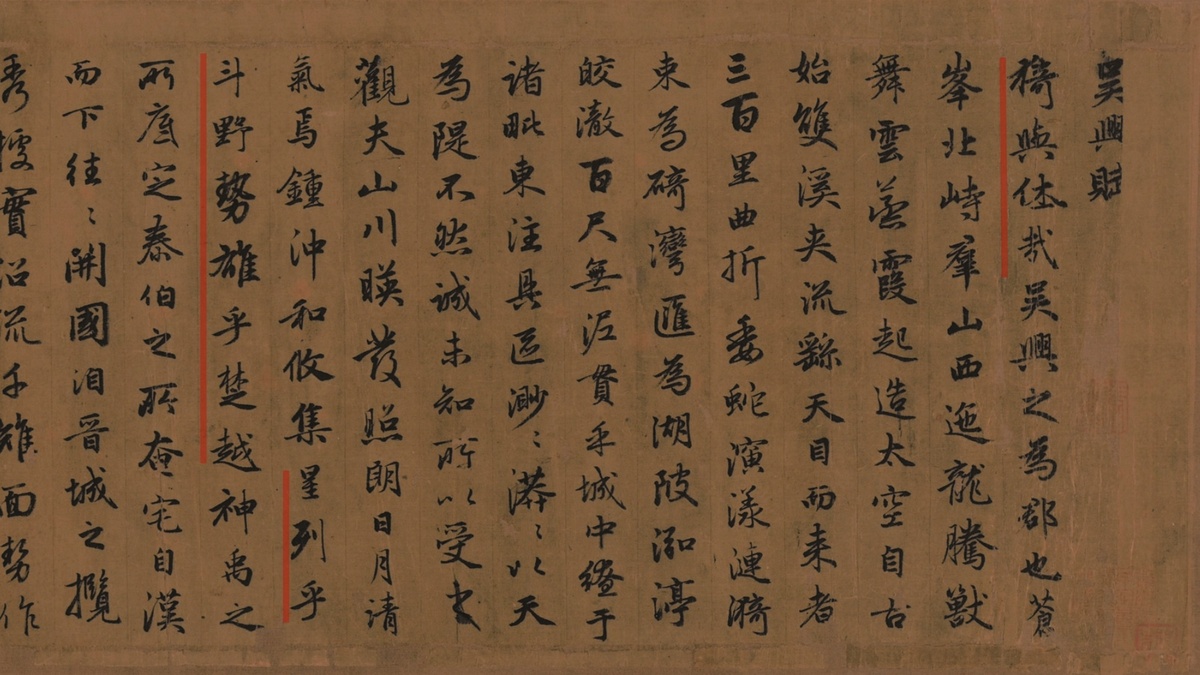 吴興賦
猗與休哉吴興之為郡也蒼
峯北峙羣山西迤龍騰獸
舞雲蒸霞起造太空自古
始雙溪夹流繇天目而来者
三百里曲折委蛇演漾漣漪
束為碕灣匯為湖陂泓渟
皎澈百尺無泥貫乎城中繚于
諸毗東注具區渺〻漭〻以天
為隄不然誠未知所以受之
觀夫山川暎發照朗日月清
氣焉鍾沖和攸集星列乎
斗野勢雄乎楚越神禹之
所底定泰伯之所奄宅自漢
而下往〻開國洎晋城之攬
秀據實沿流千雉面勢作